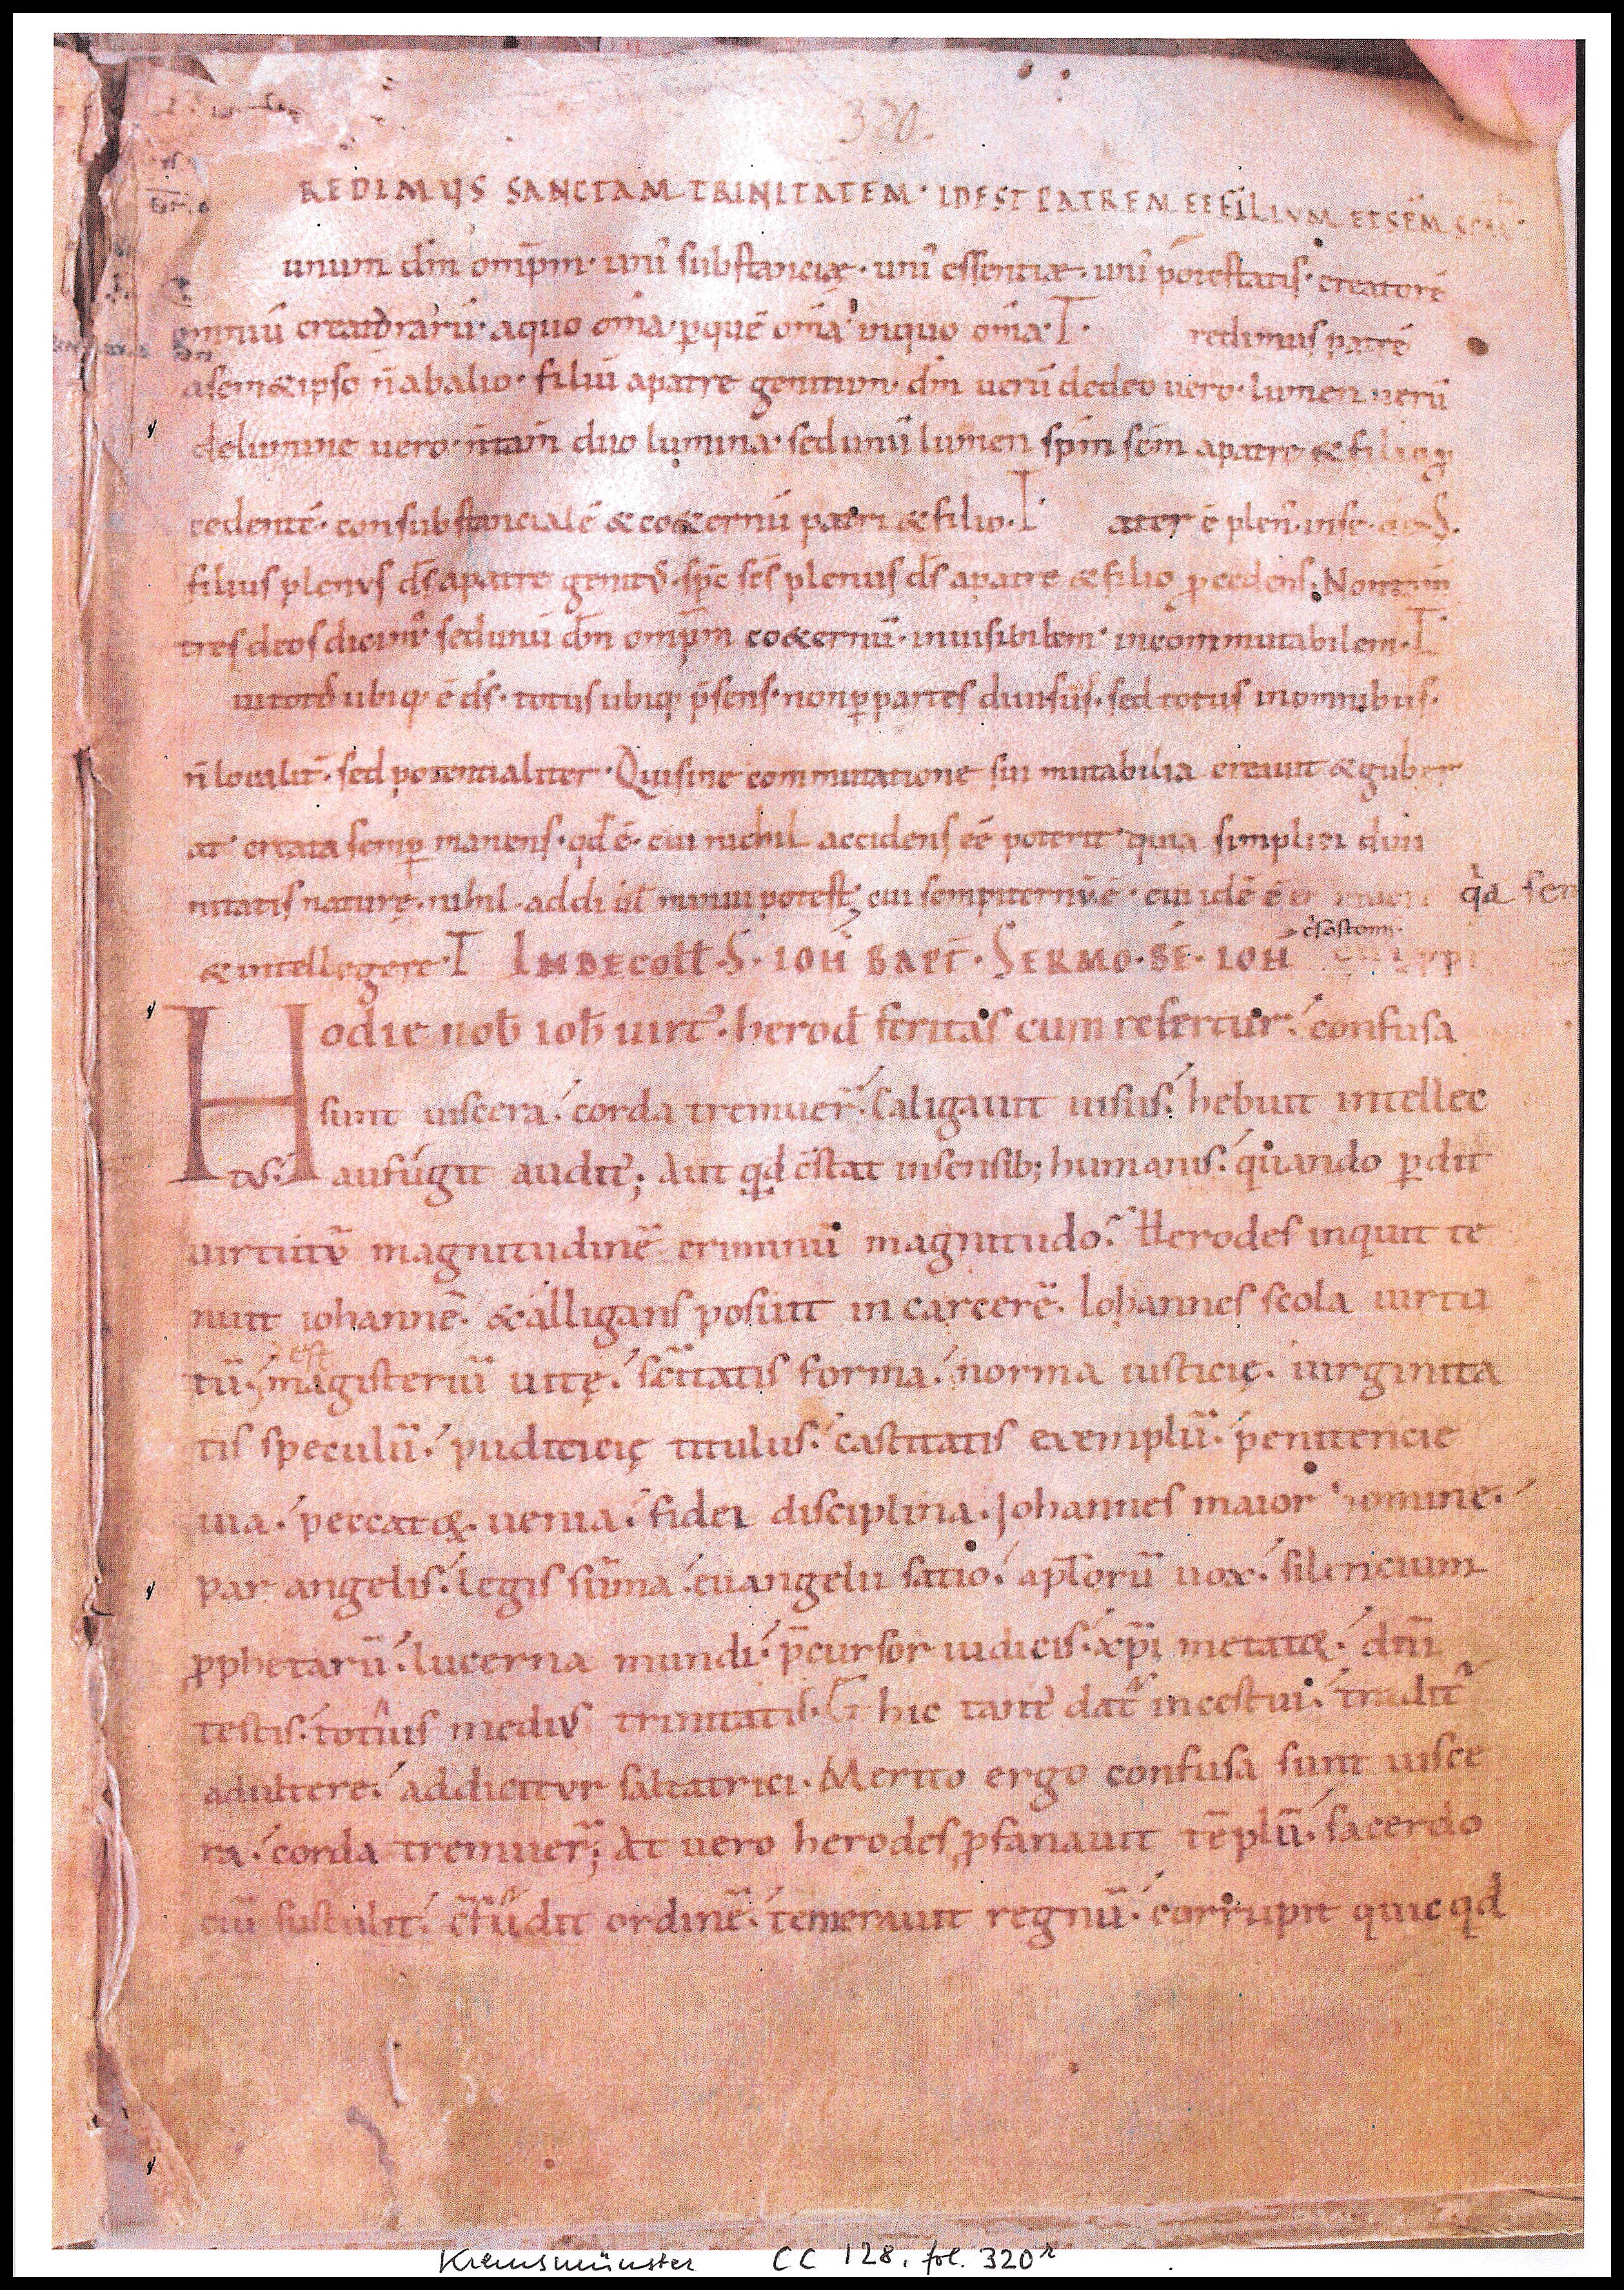 320.
REDIMUS SANCTAM TRINITATEM · IDEST PATREM ET FILIVM ET SPM SCM
unum dm̄ om̄ipm̄ · uni᾿ substanciæ · uni᾿ essentiæ · uni᾿ potestatis · creatorē
omniū creaturarū · aquo om̄ia · ꝑquē om̄ia · inquo om̄ia · T · redimus patrē
asem&ipso n̄ abalio · filiū apatre genitum · dm̄ uerū dedeo uero · lumen uerū
delumine uero · n̄ tam̄ duo lumina · sed unū lumen sp̄m sc̄m apatre & filio ꝓ
cedentē · consubstancialē & co&ernū patri & filio · T ater ē plen᾿ · inse · d̄s ·
filius plenus d̄s apatre genit᾿ · sp̄c sc̄s plenus d̄s apatre & filio ꝓcedens · Non tam̄
tres deos dicim᾿ sed unū dm̄ om̄ipm̄ co&ernū · inuisibilem · incommutabilem · T
ubiq· ē d̄s · totus ubiq· p̄sens · non ꝑ partes diuisus · sed totus inomnibus ·
n̄ localit᾿ · sed potentialiter · Qui sine commutatione sui mutabilia creauit & guber
at᾿ creata semꝑ manens · qd ē · cui nichil accidens eē poterit · quia simplici diui
nitatis naturę · nihil · addi uł minui potest · cui sempiternū ē · cui idē ē
& intellegere · T IN DECOLL · S · IOH BAPT · SERMO · BE · IOH crisostomi
Hodie nob̄ ioh̄ uirt᾿ · herod̄ feritas cum refertur · confusa
sunt uiscera · corda tremuer̄ · caligauit uisus · hebuit intellec
tus · aufugit audit᾿; Aut qd c̄stat in sensib; humanis · quando ꝑdit
uirtutū magnitudinē criminū magnitudo · Herodes inquit te
nuit iohannē · & alligans posuit in carcerē · Iohannes scola uirtu
est
tū · magisteriū uitę · sc̄itatis forma · norma iusticię · uirginita
tis speculū · pudicicię titulus · castitatis exemplū · penitencie
uia · peccatoꝝ · uenia · fidei disciplina · Iohannes maior homine ·
par angelis · legis sūma · euangelii satio · apłorū uox · silencium
ꝓphetarū · lucerna mundi · p̄cursor iudicis · xp̄i metatoꝝ · dn̄i
testis · totius medius trinitatis · Et hic tant᾿ dat᾿ incestui · tradit᾿
adultere · addicitur saltatrici · Merito ergo confusa sunt uisce
ra · corda tremuer̄; At uero herodes ꝓfanauit tēplū · sacerdo
ciū sustulit · c̄fudit ordinē · temerauit regnū · corrupit quicqd
Kremsmünster CC 128, fol. 320r